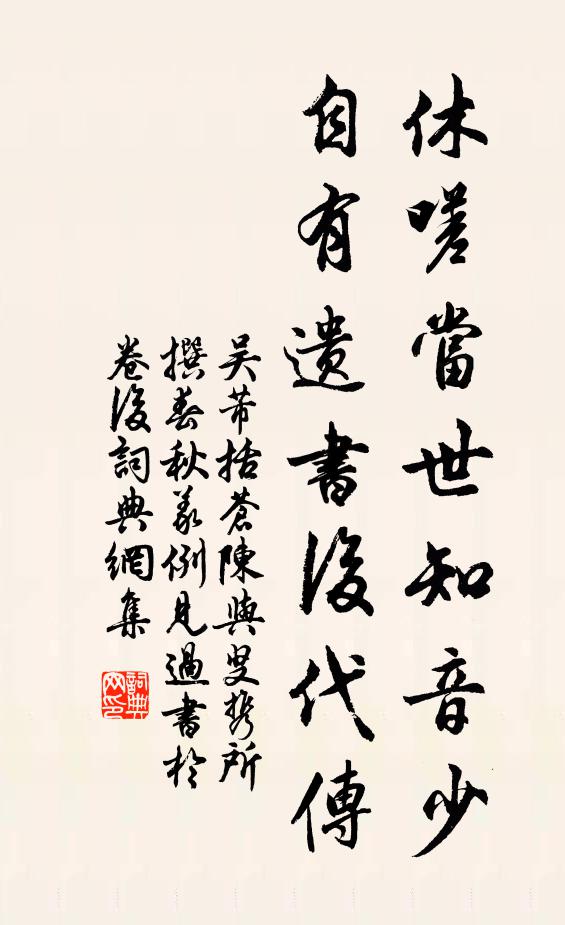 休嗟當世知音少
自有遺書後代傳
吴芾括蒼陳與叟携所
撰春秋義例見過書於
卷後詞典網集
詞典
网印